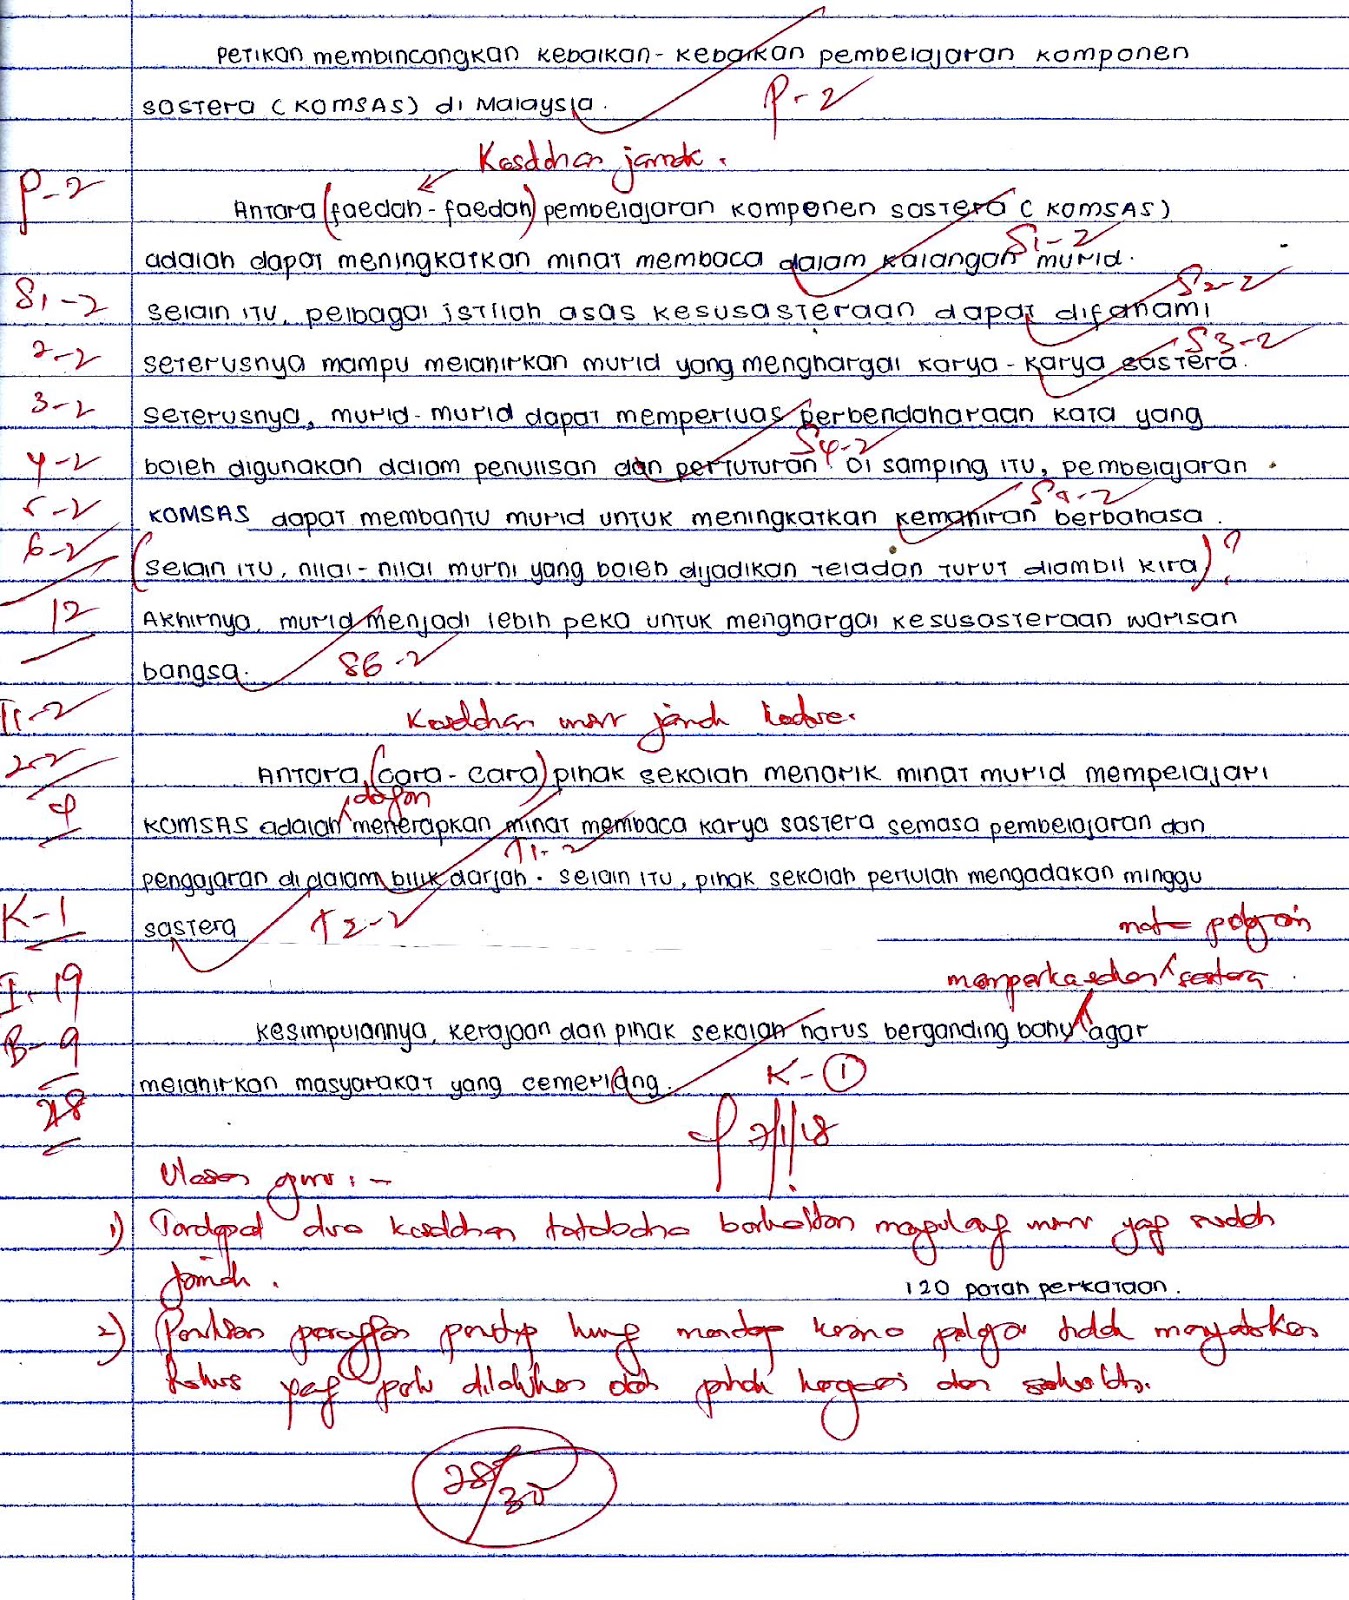 Petikan membincangkan kebaikan-kebaikan pembelajaran komponen
sastera (KOMSAS) di Malaysia.
P-2
Kesalahan jamak.
P-2
Antara (faedah-faedah) pembelajaran komponen sastera (KOMSAS)
adalah dapat meningkatkan minat membaca dalam kalangan murid.
S1-2
S1-2
Selain itu, pelbagai istilah asas kesusasteraan dapat difahami
S2-2
2-2
seterusnya mampu melahirkan murid yang menghargai karya-karya sastera.
S3-2
3-2
Seterusnya, murid-murid dapat memperluas perbendaharaan kata yang
4-2
boleh digunakan dalam penulisan dan pertuturan. Di samping itu, pembelajaran
S4-2
5-2
KOMSAS dapat membantu murid untuk meningkatkan kemahiran berbahasa.
6-2
(Selain itu, nilai-nilai murni yang boleh dijadikan teladan turut diambil kira)?
12
Akhirnya, murid menjadi lebih peka untuk menghargai kesusasteraan warisan
bangsa.
S6-2
T1-2
Kesalahan
2-2
Antara (cara-cara) pihak sekolah menarik minat murid mempelajari
4
dengan
KOMSAS adalah menerapkan minat membaca karya sastera semasa pembelajaran dan
T1-2
pengajaran di dalam bilik darjah. Selain itu, pihak sekolah perlulah mengadakan minggu
K-1
sastera
T2-2
memperkasakan sastera
I-19
Kesimpulannya, kerajaan dan pihak sekolah harus berganding bahu agar
B-9
melahirkan masyarakat yang cemerlang.
K-1
28
2/1/18
Ulasan guru:-
1) Terdapat dua kesalahan tatabahasa berkaitan mengulang yang sudah
jamak.
120 patah perkataan.
2) Penulisan perenggan penutup kurang kerana pelajar tidak menyatakan
fokus yang perlu dilakukan oleh pihak kerajaan dan sekolah.
28/30